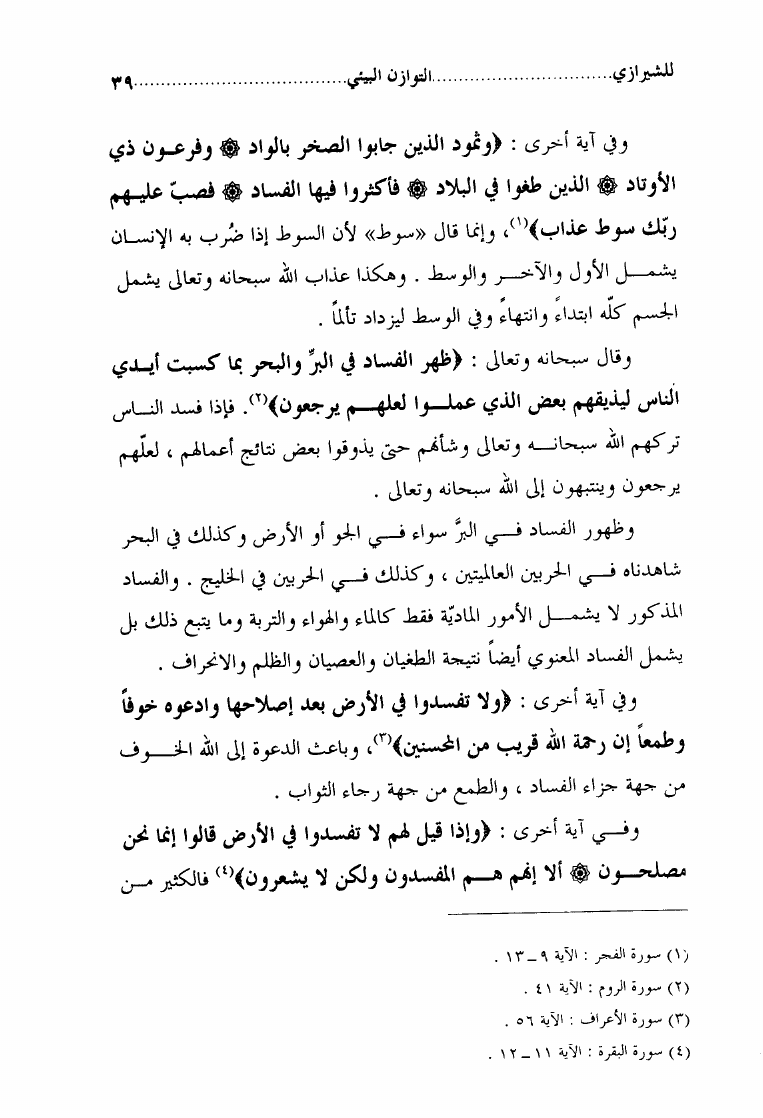 للشيرازي................................التوازن البيئي.....................................٣٩
وفي آية أخرى : ﴿وثمود الذين جابوا الصخر بالواد ۞ وفرعون ذي
الأوتاد ۞ الذين طغوا في البلاد ۞ فأكثروا فيها الفساد ۞ فصبّ عليهم
ربّك سوط عذاب﴾(١)، وإنما قال «سوط» لأن السوط إذا ضُرب به الإنسان
يشمل الأول والآخر والوسط . وهكذا عذاب الله سبحانه وتعالى يشمل
الجسم كلّه ابتداءً وانتهاءً وفي الوسط ليزداد تألماً .
وقال سبحانه وتعالى : ﴿ظهر الفساد في البرِّ والبحر بما كسبت أيدي
الناس ليذيقهم بعض الذي عملوا لعلهم يرجعون﴾(٢). فإذا فسد الناس
تركهم الله سبحانه وتعالى وشأنهم حتى يذوقوا بعض نتائج أعمالهم ، لعلّهم
يرجعون وينتبهون إلى الله سبحانه وتعالى .
وظهور الفساد في البرَّ سواء في الجو أو الأرض وكذلك في البحر
شاهدناه في الحربين العالميتين ، وكذلك في الحربين في الخليج . والفساد
المذكور لا يشمل الأمور الماديّة فقط كالماء والهواء والتربة وما يتبع ذلك بل
يشمل الفساد المعنوي أيضاً نتيجة الطغيان والعصيان والظلم والانحراف .
وفي آية أخرى : ﴿ولا تفسدوا في الأرض بعد إصلاحها وادعوه خوفاً
وطمعاً إن رحمة الله قريب من المحسنين﴾(٣)، وباعث الدعوة إلى الله الخوف
من جهة جزاء الفساد ، والطمع من جهة رجاء الثواب .
وفي آية أخرى : ﴿وإذا قيل لهم لا تفسدوا في الأرض قالوا إنما نحن
مصلحون ۞ ألا إنهم هم المفسدون ولكن لا يشعرون﴾(٤) فالكثير من
(١) سورة الفجر : الآية ٩ــ١٣ .
(٢) سورة الروم : الآية ٤١ .
(٣) سورة الأعراف : الآية ٥٦ .
(٤) سورة البقرة : الآية ١١ــ١٢ .